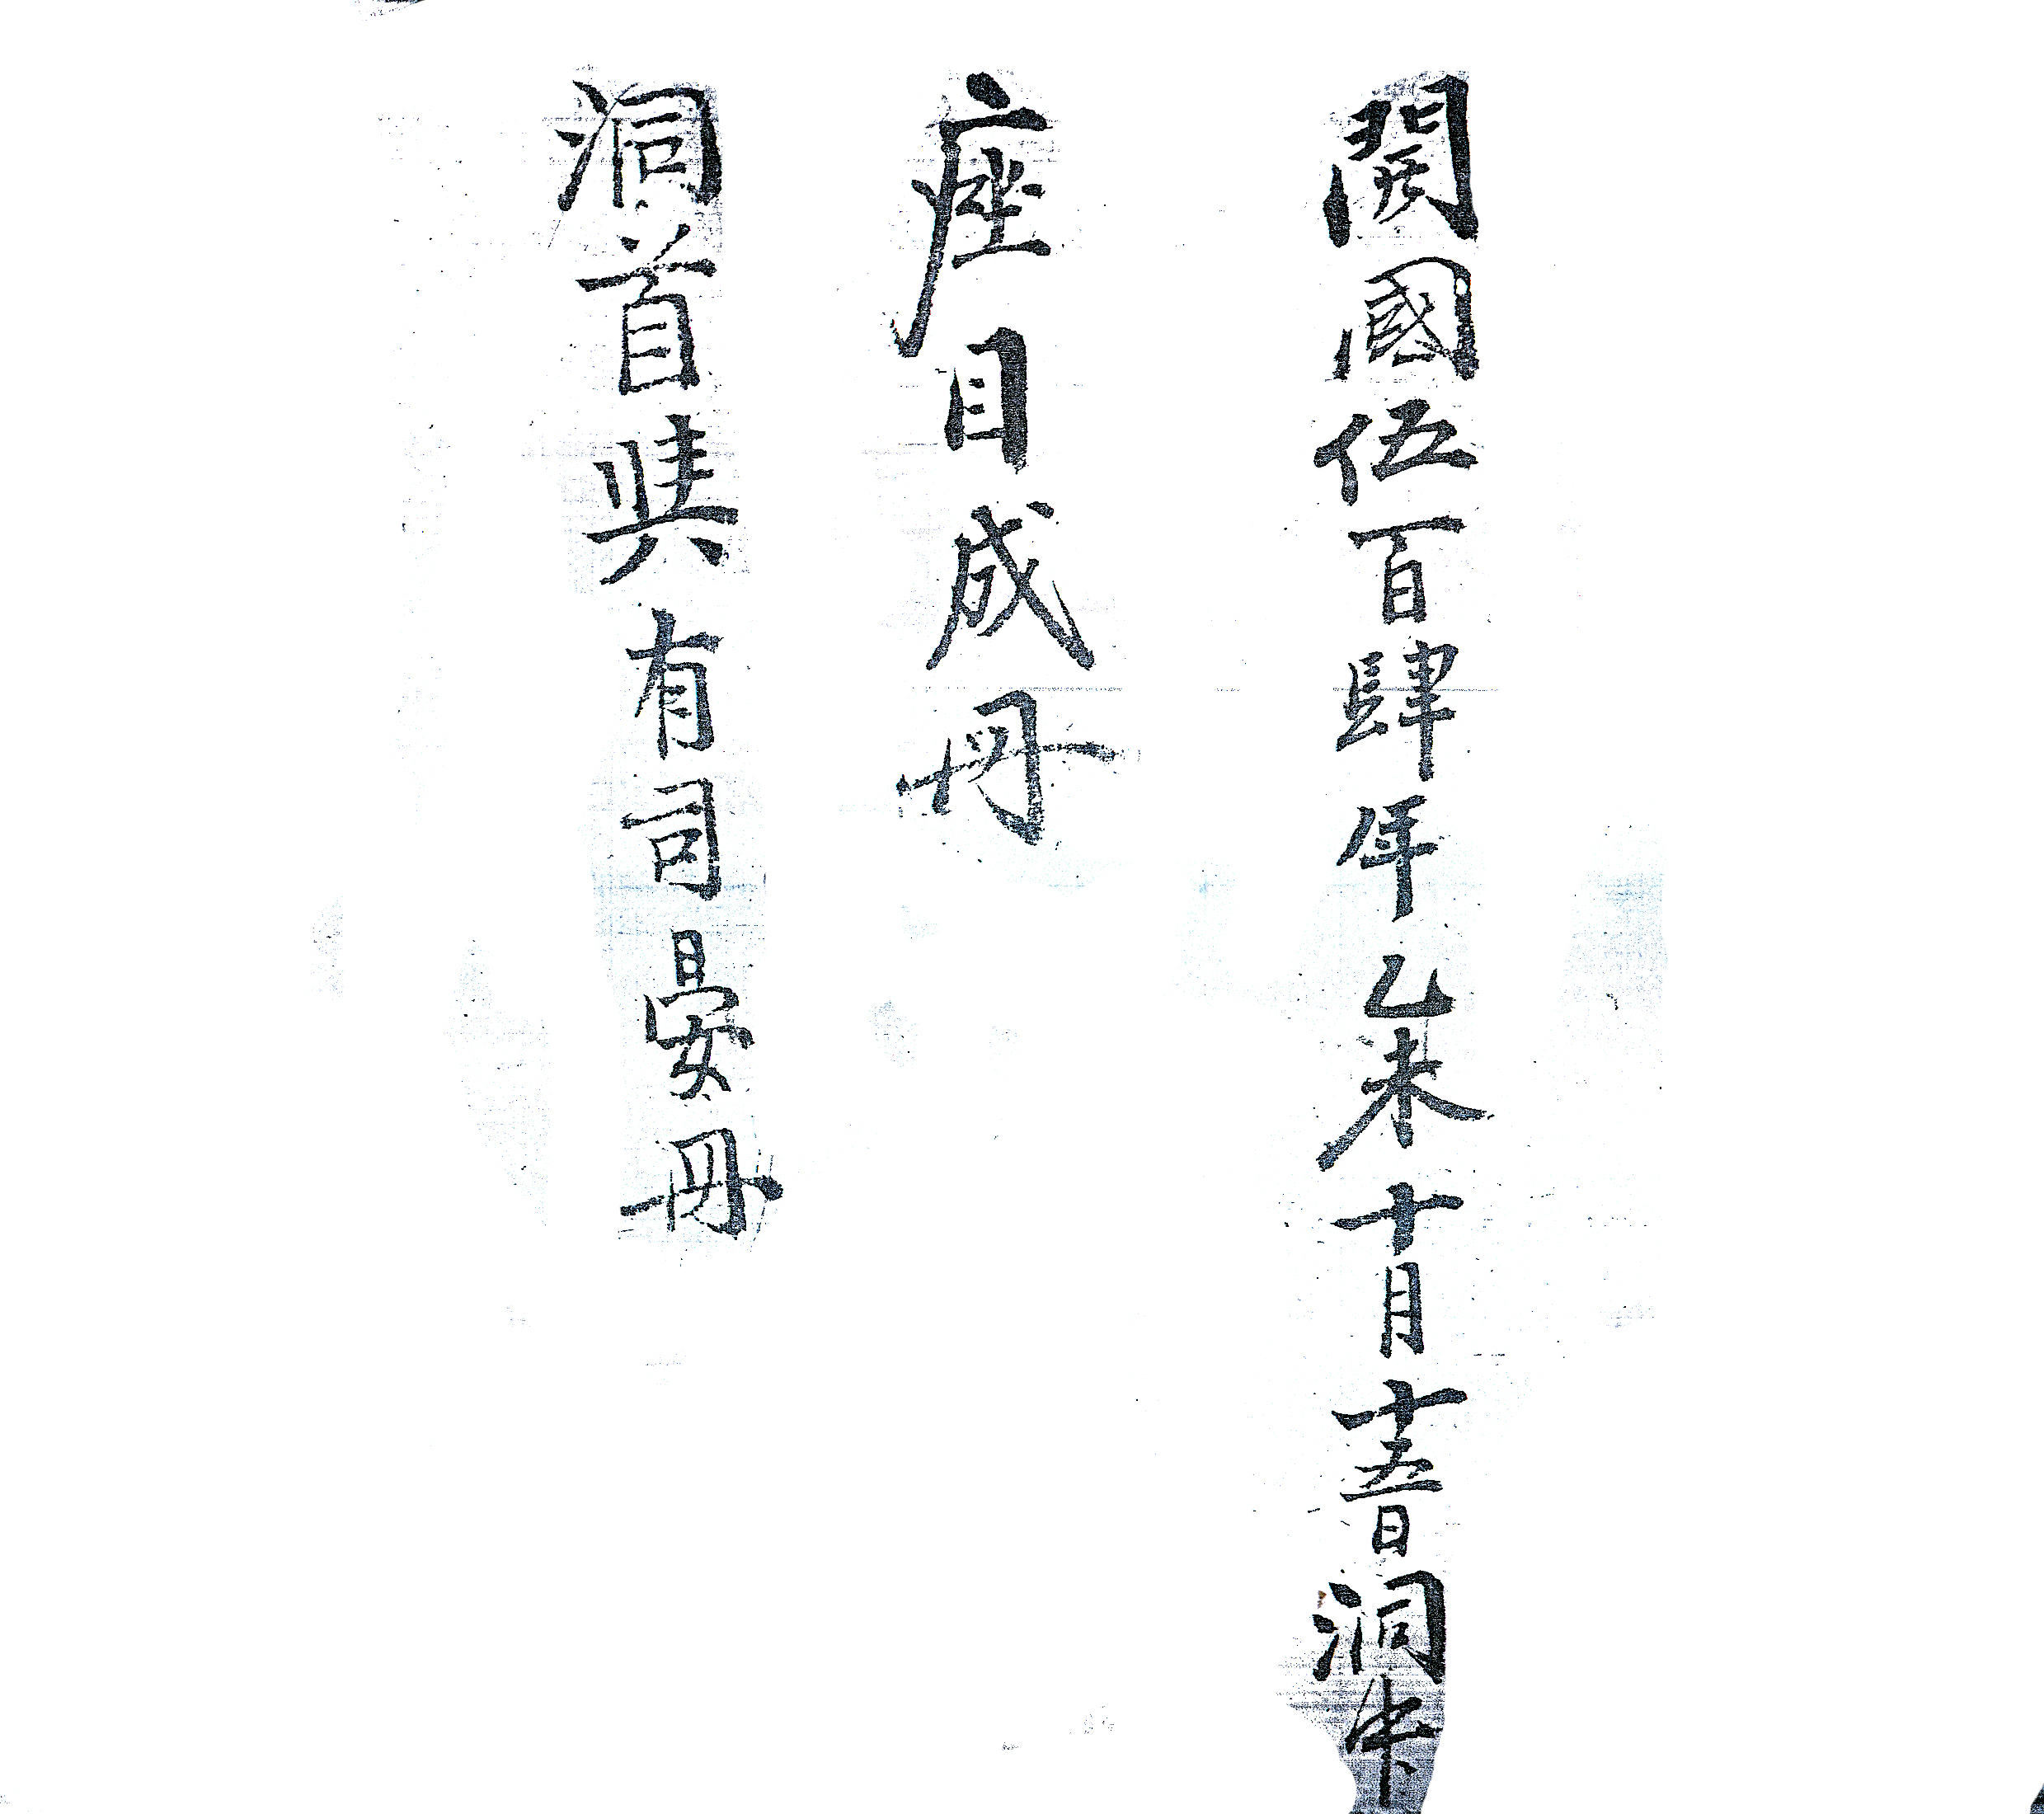 開國伍百肆年乙未十月十五日洞中
座目成冊
洞首與有司晏冊